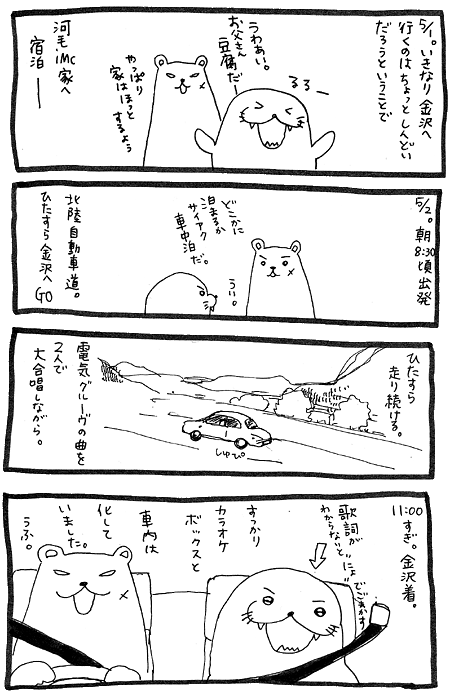 5/1。いきなり金沢へ
行くのはちょっとしんどい
だろうということで
るろー
うわあい。
お父さん
豆腐だー
やっぱり
家はほっと
するよう
河毛.iMC家へ
宿泊——
5/2。朝
8:30頃出発
どこかに
泊まるか
サイアク
車中泊だ。
うぃ。
北陸自動車道。
ひたすら金沢へGO
ひたすら
走り続ける。
しゅぴ
電気グルーヴの曲を
2人で
大合唱しながら。
11:00すぎ。金沢着。
歌詞が
わからないと"にょ"でごまかす
すっかり
カラオケ
ボックスと
車内は
化して
いました。
うふ。